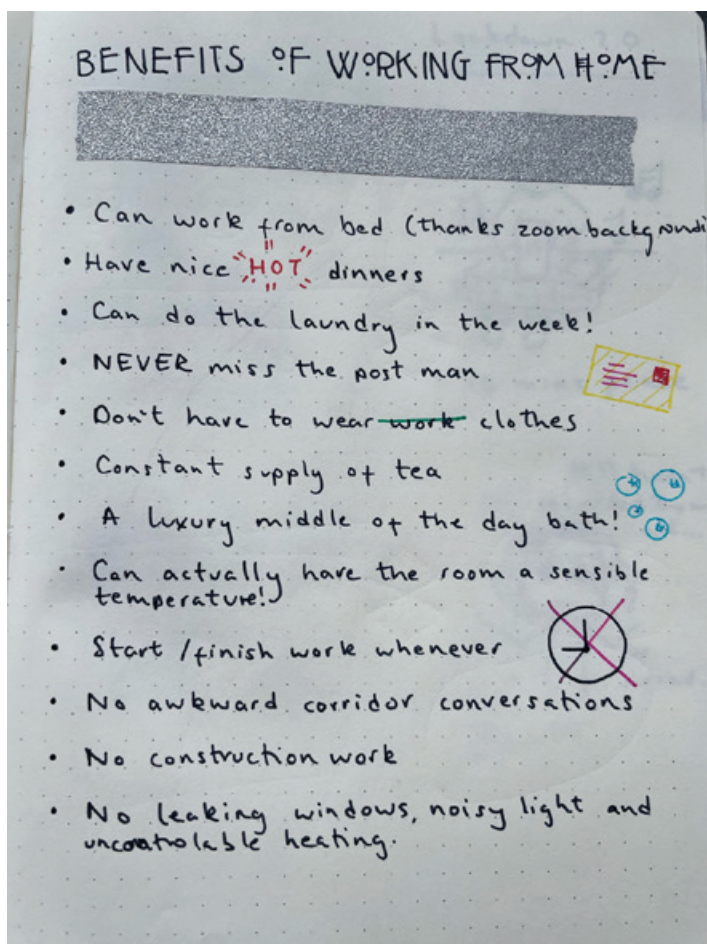 BENEFITS OF WORKING FROM HOME
• Can work from bed (thanks zoom backgroundi
• Have nice HOT dinners
• Can do the laundry in the week!
• NEVER miss the post man
• Don't have to wear work clothes
• Constant supply of tea
• A luxury middle of the day bath!
• Can actually have the room a sensible
temperature!
• Start /finish work whenever
• No awkward corridor conversations
• No construction work
• No leaking windows, noisy light and
uncontrolable heating.